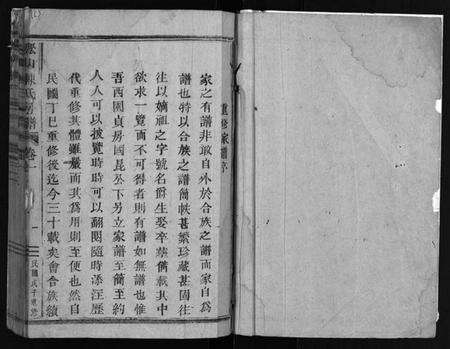 重修家譜序
家之有譜非敢自外於合族之譜而家自爲
譜也特以合族之譜簡帙甚繁珍藏甚固往
往以嫡祖之字號名爵生娶卒葬俻載其中
欲求一覽而不可得者則有譜如無譜也惟
吾西國貞房國昆公下另立家譜至簡至約
人人可以披覽時時可以翻閱隨時添注歷
代重修其體雖嚴而其爲用則至便也然自
民國丁巳重修後迄今三十載矣會合族續
山陳氏房譜 卷一
一
民國戊子重修